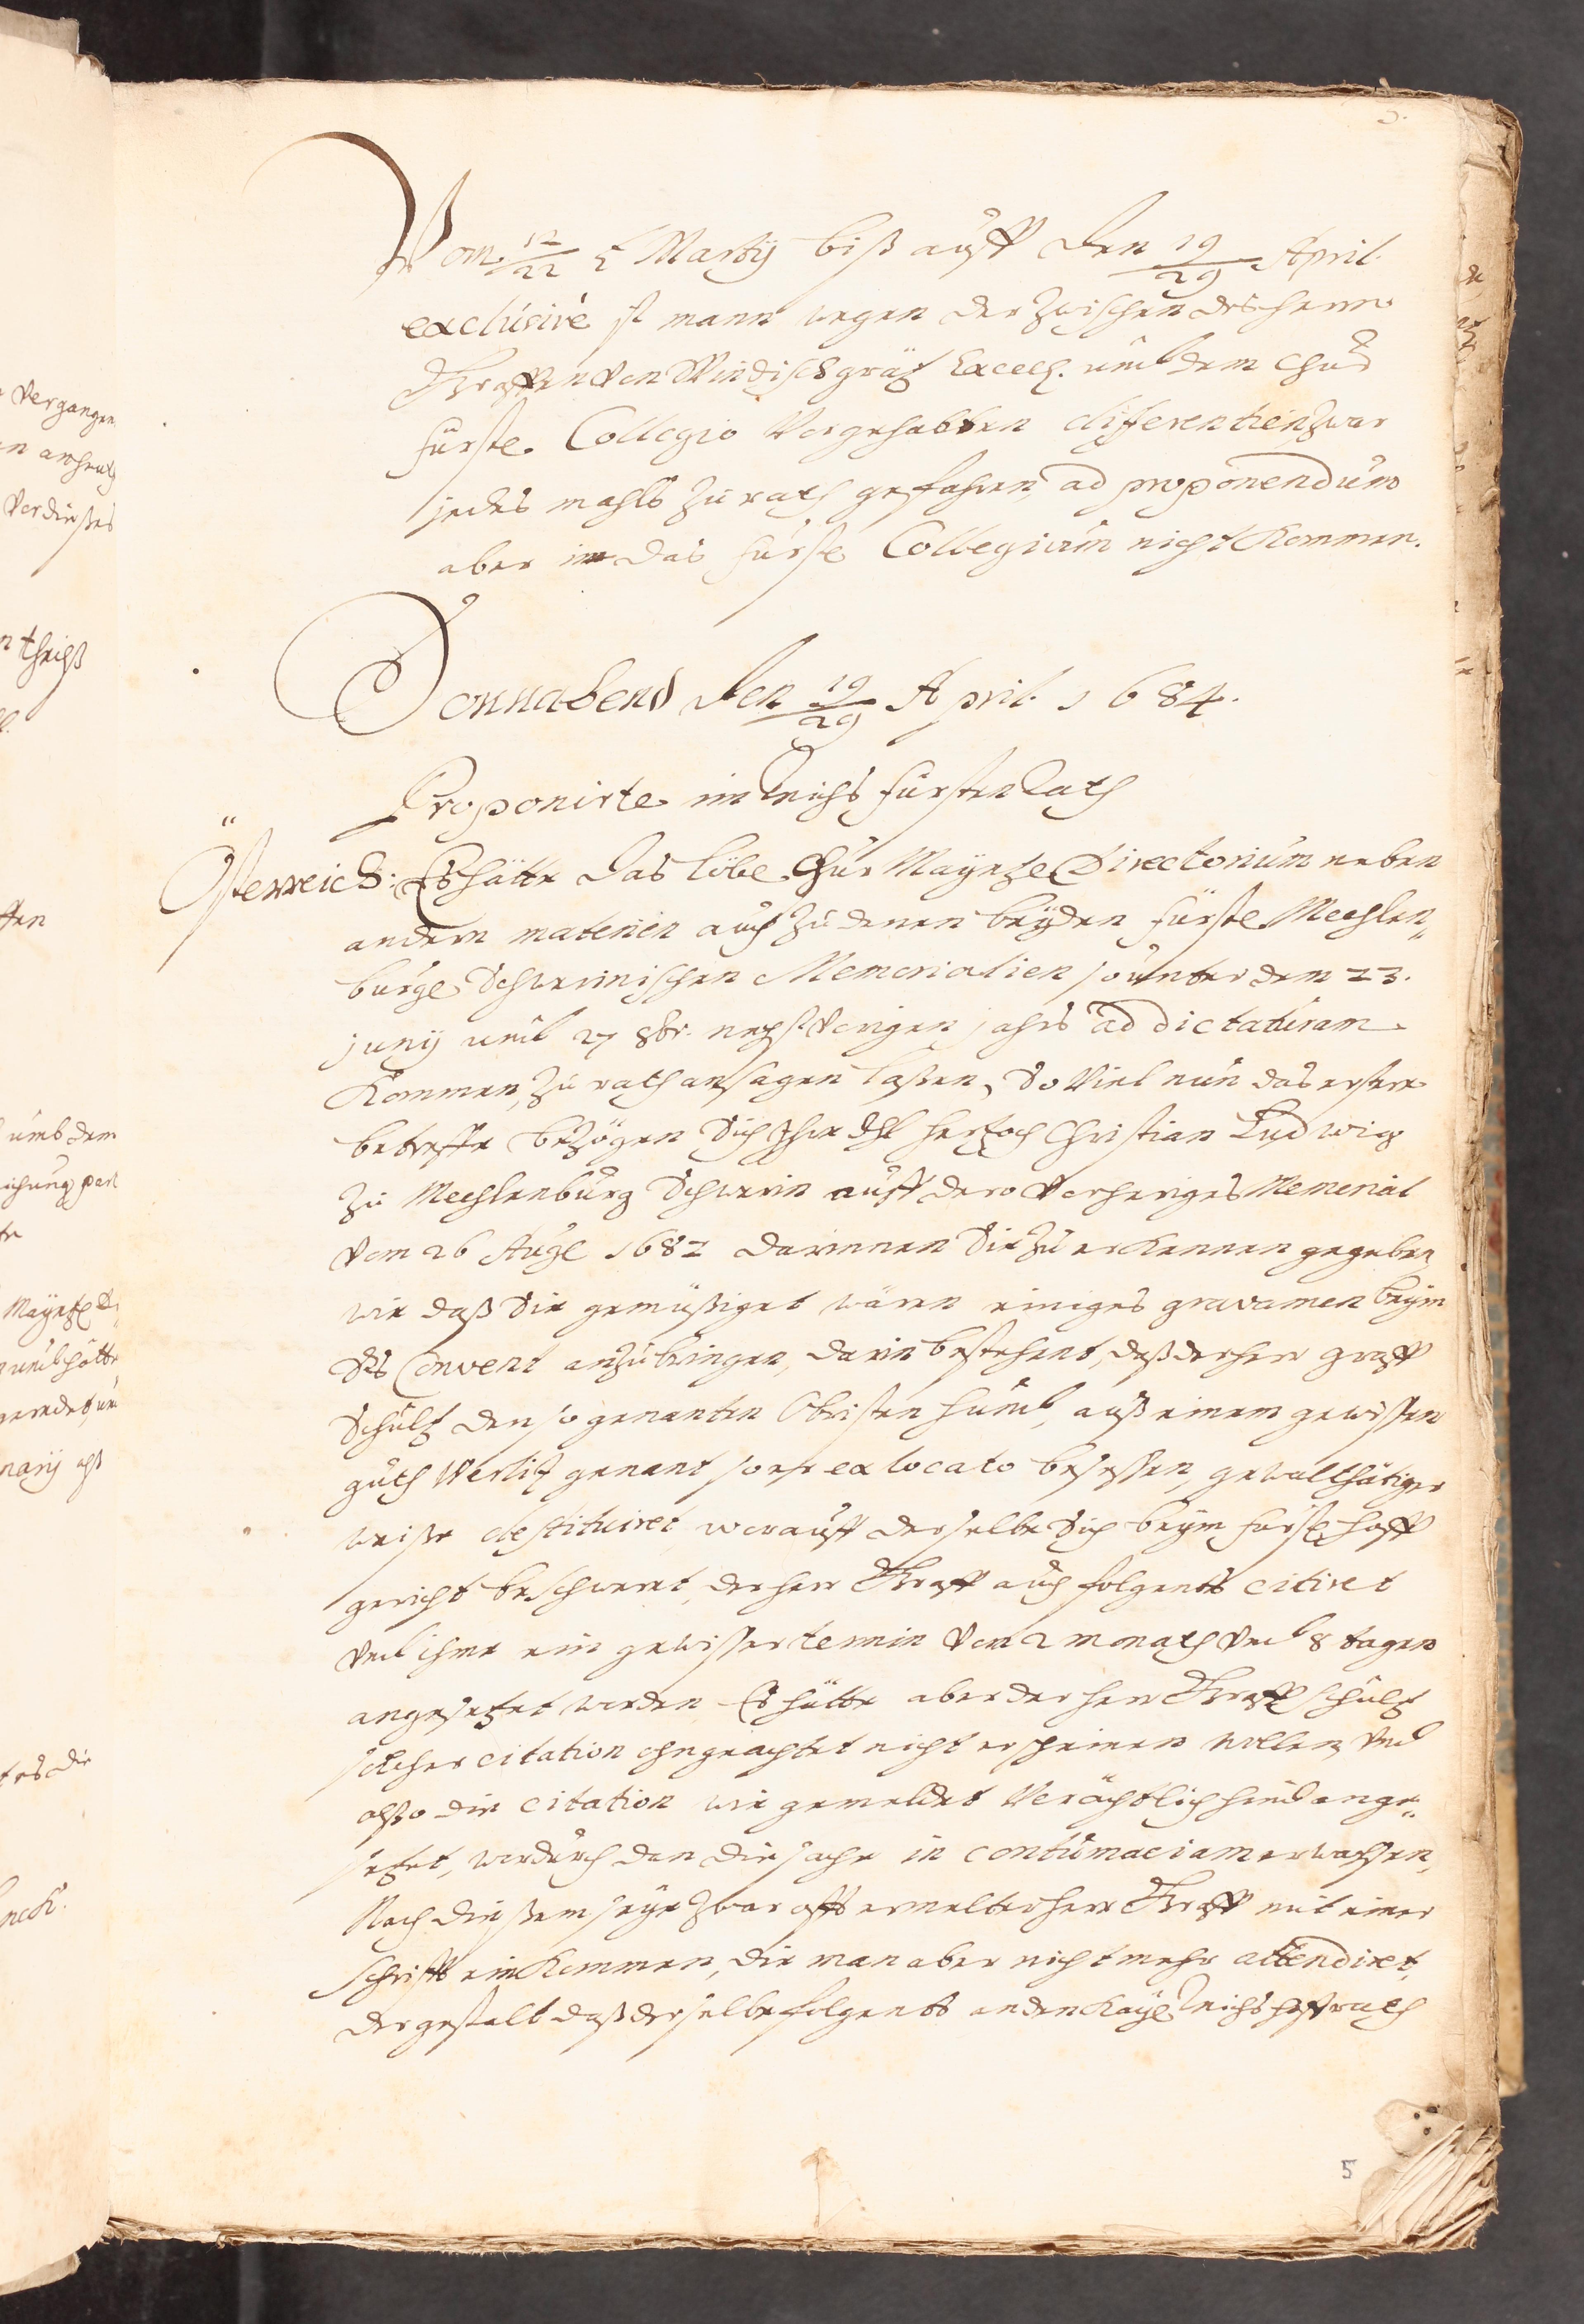 Vom 12/22 Martij biß auff den 19/29 April.
exclusivè ist mann wegen der zwischen des herrn
Graffen von Windischgräz Excell. und dem Chur
fürstl. Collegio Vorgehabten differentien zwar
jedes mahls zu rath gefahren, ad proponendum
aber in das fürstl Collegium nicht kommen.
Sonnabend den 19/29 April. 1684.
Proponirte im Reichs fürsten Rath
Österreich: Es hätte das löbl. Chur Mayntzl Directorium neben
andern materien auch zu denen beyden fürstl. Mechlen„
burgl. Schwerinischen Memorialien so unter dem 23.
junij und 27 8br. nechst Vorigen jahrs ad dictaturam
kommen, zu rath ansagen laßen, So Viel nun das erstere
betreffe bezögen Sich Ihre dhl hertzog Christian Ludwig
zu Mechlenburg Schwerin auff dero Vorheriges Memorial
Vom 26 Augl 1682 darinnen Sie zu erkennen gegeben,
wie daß Sie gemüßiget wären einiges gravamen beym
Rs Convent anzubringen, darin bestehent, daß der herr graff
Schultz den so genanten Obristen hund, auß einem gewissen
guth Werlitz genant so er ex locato besessen, gewaltthätiger
weiße destituiret worauff derselbe Sich beym fürstl hoff
gericht beschweret, der herr Graff auch folgents citiret
Und ihme ein gewisser termin Von 2 monath Und 8 tagen
angesetzet worden Es hätte aber der herr Graff schultz
solcher citation ohngeachtet nicht erscheinen wollen, Und
also die citation wie gemeldet Verächtlich hindange„
setzet, wordurch dan die sache in contumaciam erwachsen,
Nach dießem seye zwar offt ermelter herr Graff mit einer
schrifft einkommen, die man aber nicht mehr attendiret,
dergestalt daß derselbe folgents an den Kayßl Reichs hoffrath
5